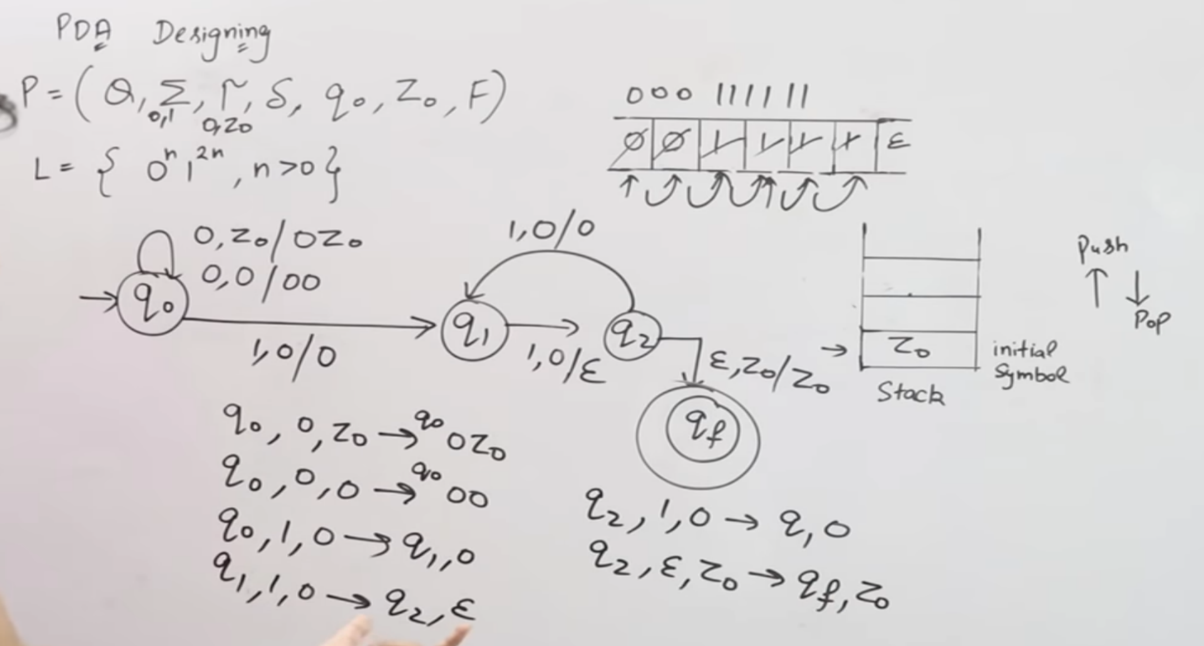 PDA Designing
P = (Q, Σ, Γ, δ, q₀, Z₀, F)
0,1 0,Z₀
L = { 0ⁿ 1²ⁿ , n>0 }
000 111111
0 0 1 1 1 1 ε
0,Z₀/0Z₀
0,0/00
q₀
1,0/0
q₁
1,0/ε
1,0/0
q₂
ε,Z₀/Z₀
qf
Z₀
Stack
initial
Symbol
Push
↑ ↓
Pop
q₀, 0, Z₀ → q₀ 0Z₀
q₀, 0, 0 → q₀ 00
q₀, 1, 0 → q₁, 0
q₁, 1, 0 → q₂, ε
q₂, 1, 0 → q, 0
q₂, ε, Z₀ → qf, Z₀